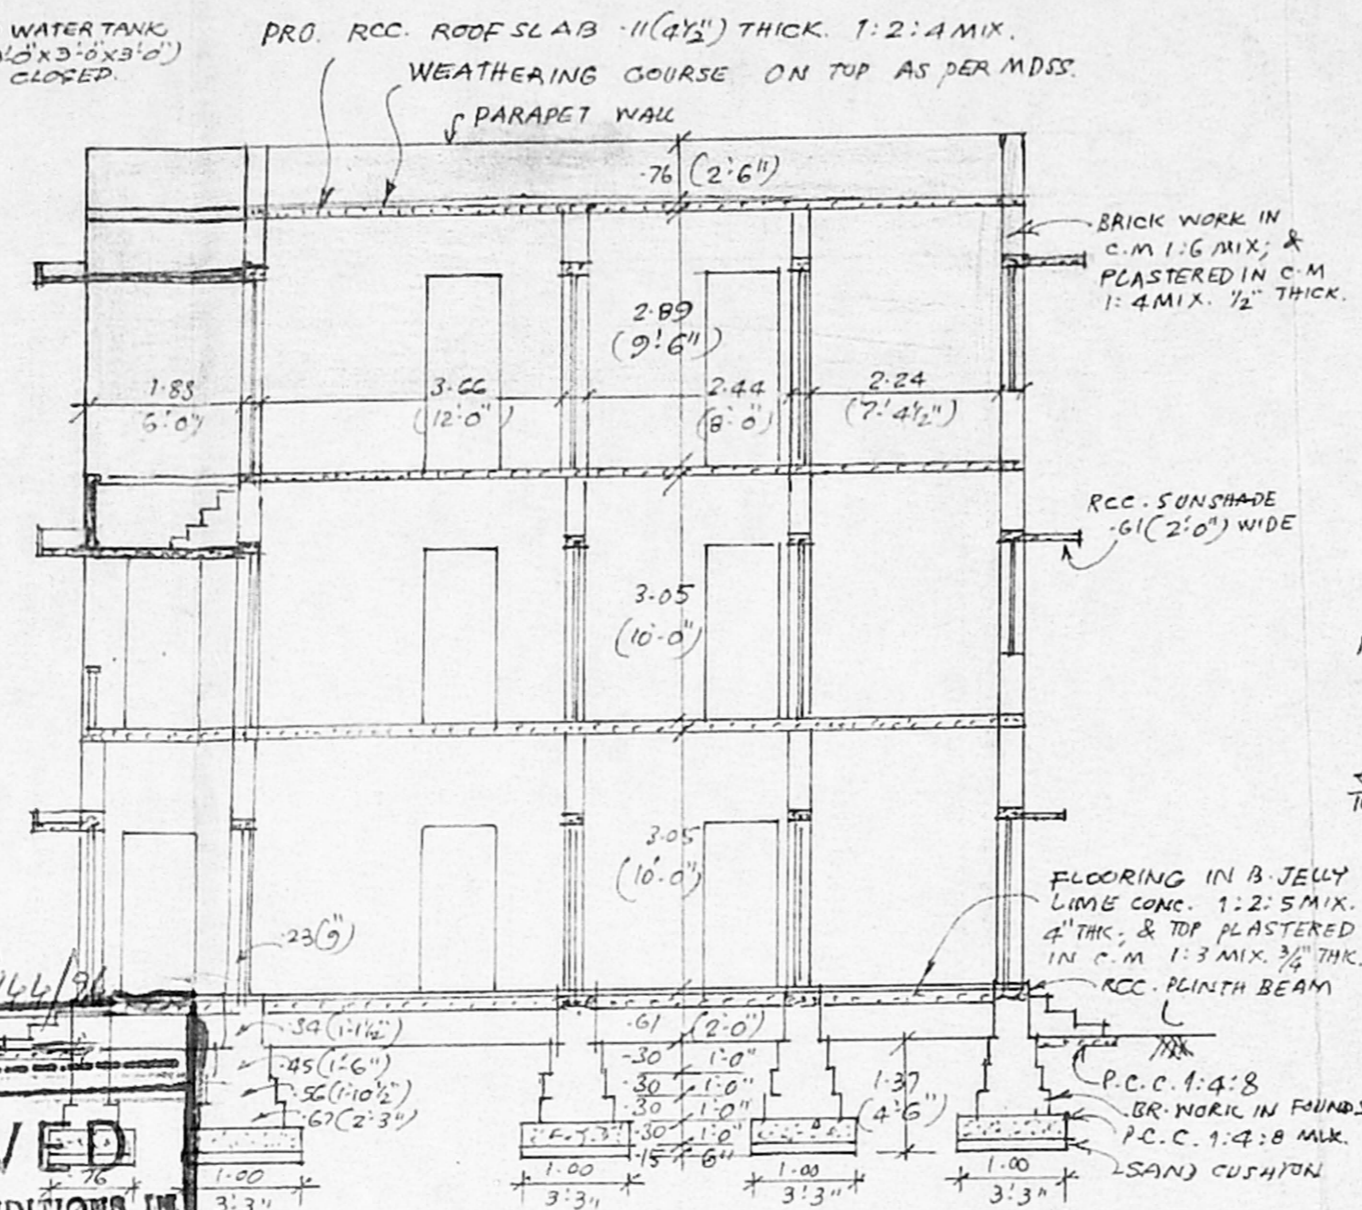 WATER TANK
x3'-0"x3'-0")
CLOSED.
PRO. RCC. ROOF SLAB ·11(4½") THICK. 1:2:4 MIX.
WEATHERING COURSE ON TOP AS PER MDSS.
PARAPET WALL
·76 (2'-6")
BRICK WORK IN
C.M 1:6 MIX; &
PLASTERED IN C.M
1:4 MIX. ½" THICK.
2·89
(9'-6")
1·83
(6'-0")
3·66
(12'-0")
2·44
(8'-0")
2·24
(7'-4½")
RCC. SUNSHADE
·61(2'-0") WIDE
3·05
(10'-0")
3·05
(10'-0")
·23(9")
FLOORING IN B. JELLY
LIME CONC. 1:2:5 MIX.
4" THK; & TOP PLASTERED
IN C.M 1:3 MIX. ¾" THK.
RCC. PLINTH BEAM
·34(1'-1½")
·45(1'-6")
·56(1'-10½")
·67(2'-3")
·61 (2'-0")
·30 1'-0"
·30 1'-0"
·30 1'-0"
·30 1'-0"
·15 6"
1·37
(4'-6")
P.C.C. 1:4:8
BR. WORK IN FOUNDS
P.C.C. 1:4:8 MIX.
SAND CUSHION
·76
1·00
3'-3"
1·00
3'-3"
1·00
3'-3"
1·00
3'-3"
VED
DITIONS IN